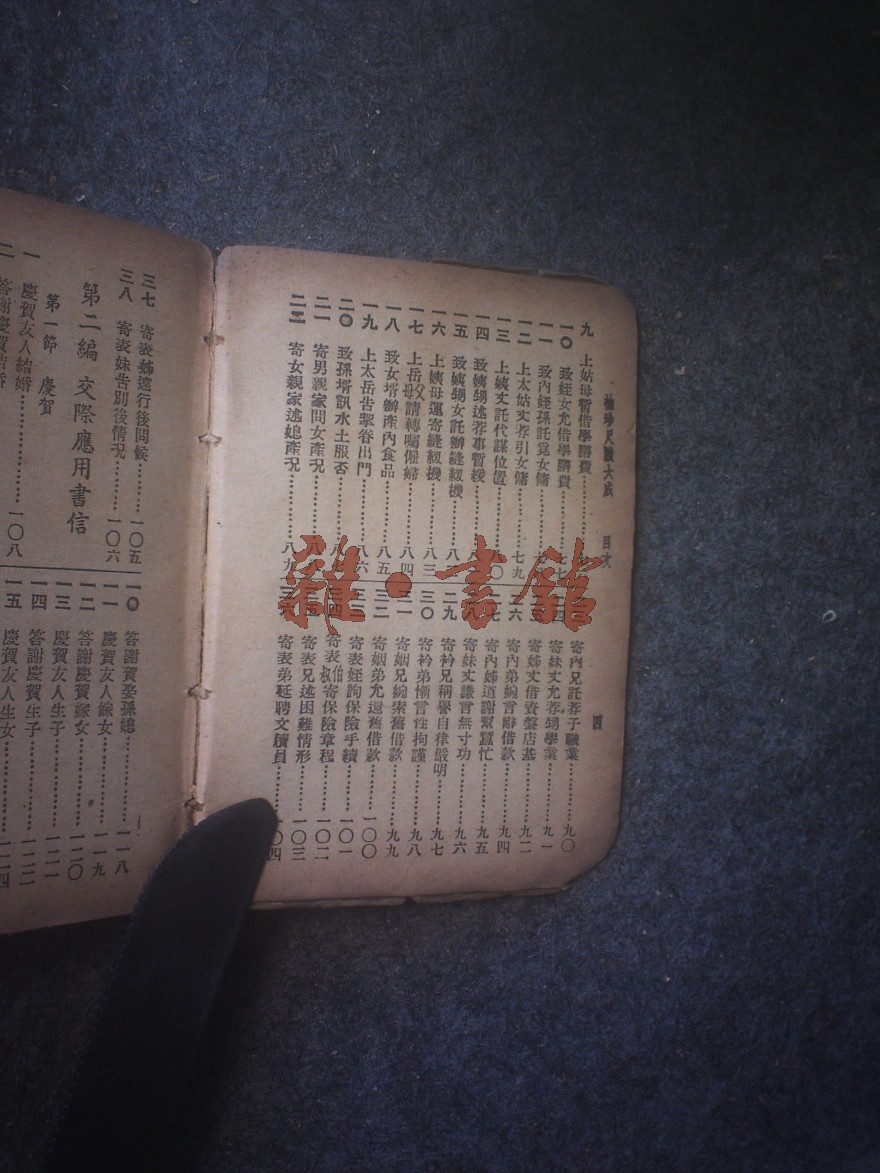 袖珍尺牘大成 目次 四
九 上姑母暫借學膳費
一〇 致姪女允借學膳費 七七
一一 致內姪孫託覓女傭
一二 上太姑丈荐引女傭 七九
一三 上姨丈託代謀位置
一四 致姨甥述荐事暫緩
一五 致姨甥女託辦縫紉機
一六 上姨母運寄縫紉機 八三
一七 上岳父母請轉囑僱婦 八四
一八 致女壻辦產內食品 八五
一九 上太岳告挈眷出門 八六
二〇 致孫壻訊水土服否
二一 寄男親家問女產況
二二 寄女親家述媳產況 八九
寄內兄託荐子職業 九〇
寄妹丈允荐甥學業 九一
寄姊丈借資盤店基 九二
寄內弟婉言辭借款 九四
寄內姊道謝幫蠶忙 九五
寄妹丈謙言無寸功 九六
二九 寄衿兄稱譽自律嚴明 九七
三〇 寄衿弟慚言性拘謹 九八
三一 寄姻兄婉索舊借款 九九
三二 寄姻弟允還舊借款 一〇〇
寄表姪詢保險手續 一〇一
寄表伯叔寄保險章程 一〇二
寄表兄述困難情形 一〇三
三六 寄表弟延聘文牘員 一〇四
三七 寄表姊遠行後問候 一〇五
三八 寄表妹告別後情況 一〇六
第二編 交際應用書信
第一節 慶賀
一 慶賀友人結婚 一〇八
二 答謝慶賀結婚
一〇 答謝賀娶孫媳 一一八
一一 慶賀友人嫁女 一一九
一二 答謝慶賀嫁女 一二〇
一三 慶賀友人生子
一四 答謝慶賀生子
一五 慶賀友人生女 一二四
雜·書館